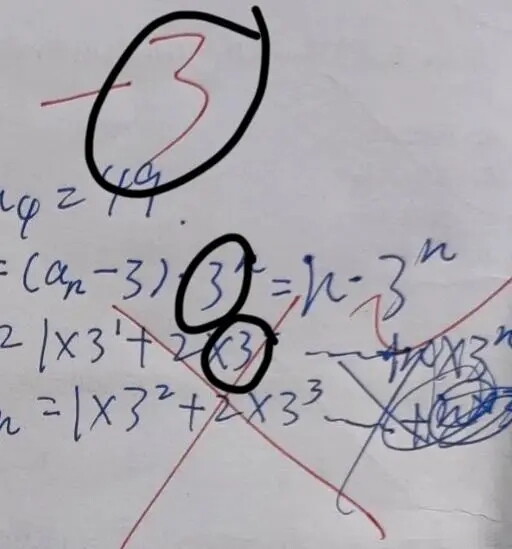 -3
a₄=49.
=(aₙ-3)·3ⁿ=n·3ⁿ
=1×3¹+2×3² — +n×3ⁿ
n=1×3²+2×3³ — +